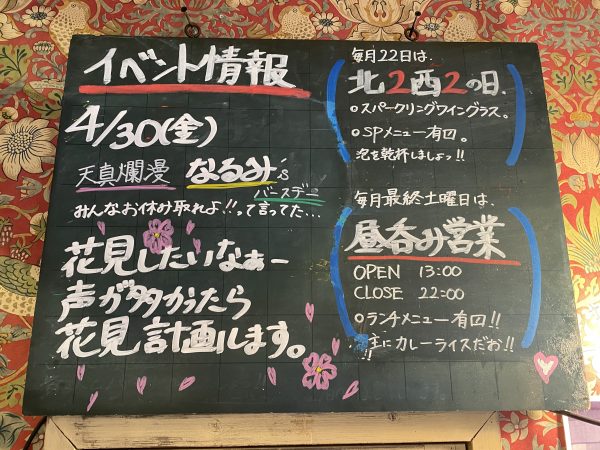 イベント情報
4/30(金)
天真爛漫 なるみ's
バースデー
みんなお休み取れよ!!って言ってた…
花見したいなぁー
声が多かったら
花見計画ルます。
毎月22日は、
北2西2の日、
○スパークリングワイングラス。
○SPメニュー有回。
泡を乾杯しましょっ!!
毎月最終土曜日は、
昼呑み営業
OPEN 13:00
CLOSE 22:00
○ランチメニュー有回!!
主にカレーライスだお!!
!!